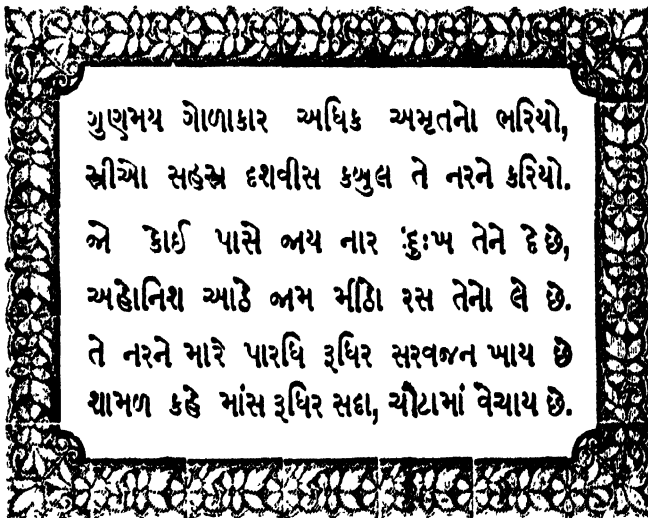 ગુણમય ગોળાકાર અધિક અમૃતનો ભરિયો,
સ્ત્રીઓ સહસ્ત્ર દશવીસ કબુલ તે નરને કરિયો.
જો કોઈ પાસે જાય નાર દુઃખ તેને દે છે,
અહોનિશ આઠે જામ મીઠો રસ તેનો લે છે.
તે નરને મારે પારધિ રૂધિર સરવજન ખાય છે
શામળ કહે માંસ રૂધિર સદા, ચૌટામાં વેચાય છે.